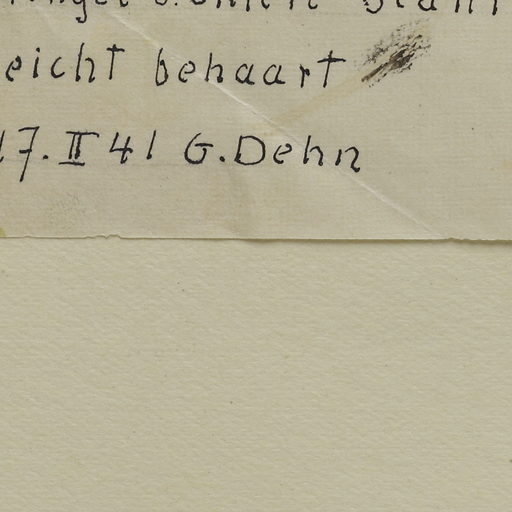 eicht behaart
17. II 41 G. Dehn